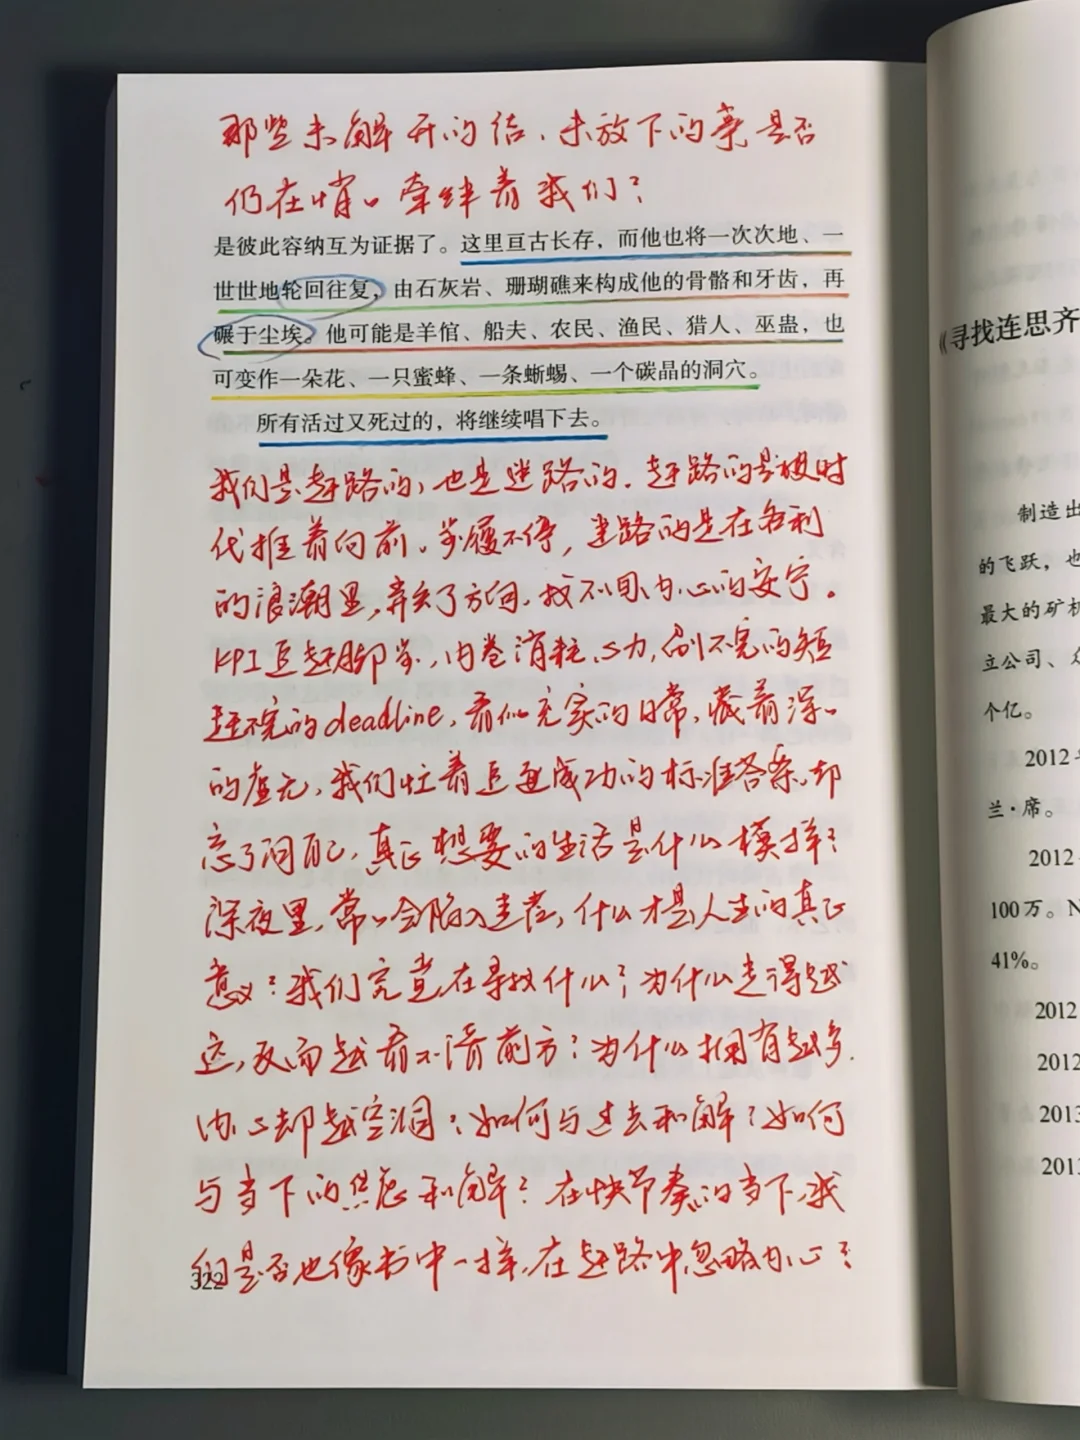 那些未解开的结、未放下的案是否
仍在悄悄牵绊着我们?
是彼此容纳互为证据了。这里亘古长存，而他也将一次次地、一
世世地轮回往复，由石灰岩、珊瑚礁来构成他的骨骼和牙齿，再
碾于尘埃。他可能是羊倌、船夫、农民、渔民、猎人、巫蛊，也
可变作一朵花、一只蜜蜂、一条蜥蜴、一个碳晶的洞穴。
所有活过又死过的，将继续唱下去。
我们是赶路的，也是迷路的，赶路的是被时
代推着向前，步履不停，迷路的是在名利
的浪潮里，弄失了方向，找不回内心的安宁。
KPI追赶脚步，内卷消耗心力，刷不完的短
赶不完的deadline，看似充实的日常，藏着深深
的虚无，我们忙着追逐成功的标准答案，却
忘了问自己，真正想要的生活是什么模样?
深夜里，常常会陷入迷茫，什么才是人生的真正
意义?我们究竟在寻找什么?为什么走得越
远，反而越看不清前方?为什么拥有越多，
内心却越空洞?如何与过去和解?如何
与当下的焦虑和解?在快节奏的当下，我
们是否也像书中一样，在赶路中忽略内心?
322
《寻找连思齐
制造出
的飞跃，也
最大的矿机
立公司、众
个亿。
2012
兰·席。
2012
100万。N
41%。
2012
2012
2013
2013